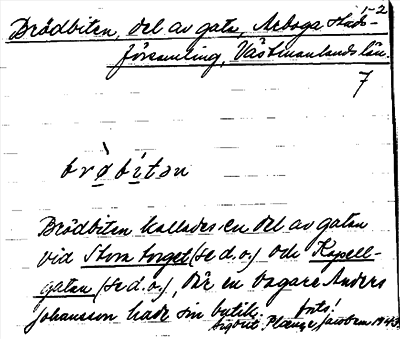 1-2
Brödbiten, del av gata, Arboga Stads-
församling, Västmanlands län.
7
brò̱bi̱tən
Brödbiten kallades en del av gatan
vid Stora torget (se d.o.) och Kapell-
gatan (se d.o.), där en bagare Anders
Johansson hade sin butik. forts!
Sigbrit Plænge Jacobson 1943